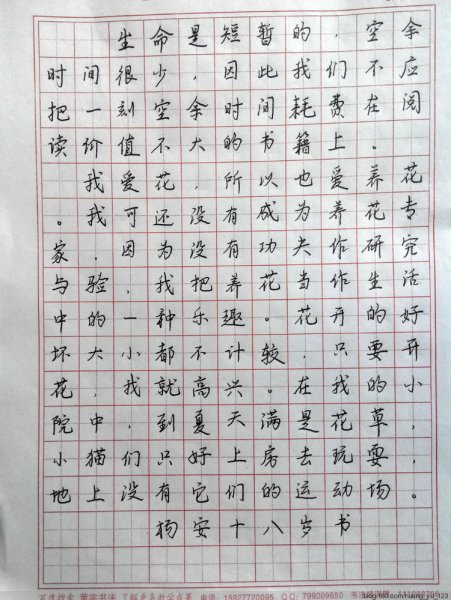 生命是短暂的，空余
时间很少，因此我们不应
把一刻空余时间耗费在阅
读价值不大的书籍上。
我爱花，所以也爱养花
。我可还没有成为养花专
家，因为没有功夫作研究
与验，我把养花当作生活
中的一种乐趣。花开的好
坏大小都不计较，只要开
花，我就高兴。在我的小
院中，到夏天满是花草，
小猫们只好上房去玩耍，
地上没有它们的运动场。
杨安十八岁书
百度搜索 了解更多教学成果 电话：15927720095 QQ：799009650
blog.163.com/huang_yu_123